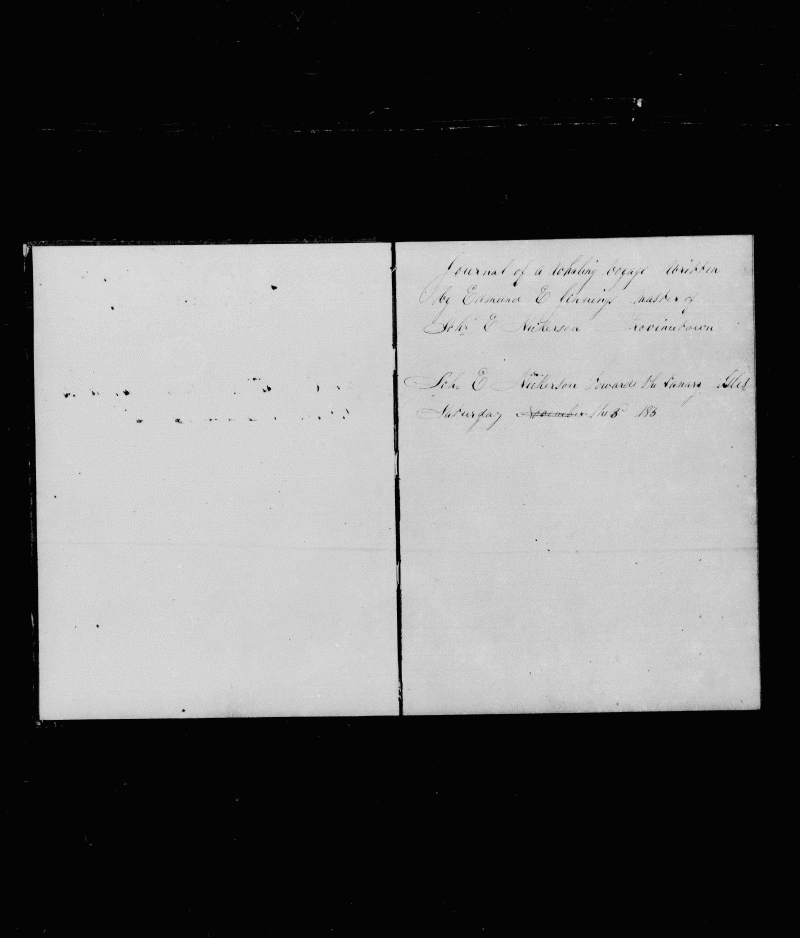 Journal of a Whaling Voyage Written
By Edmund E Jennings master of
Schr E Nickerson Provincetown
Sch E Nickerson towards the Canary Isles
Saturday November the 5 185